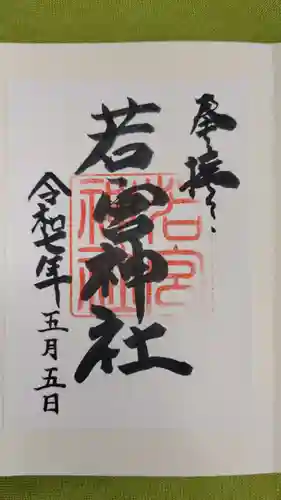 奉拝
若宮神社
令和七年
五月五日
若宮
神社